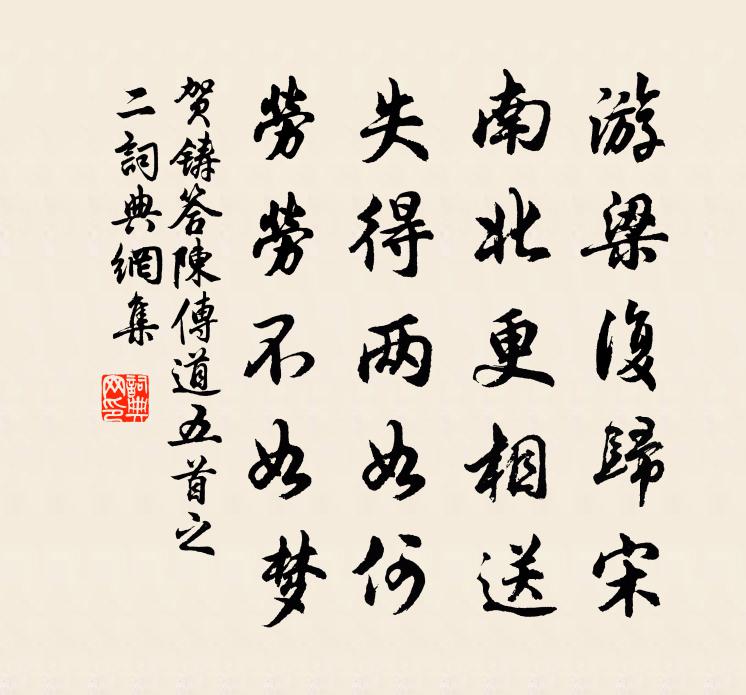 游梁復歸宋
南北更相送
失得两如何
勞勞不如梦
贺铸答陳傳道五首之
二詞典網集
詞典
网印